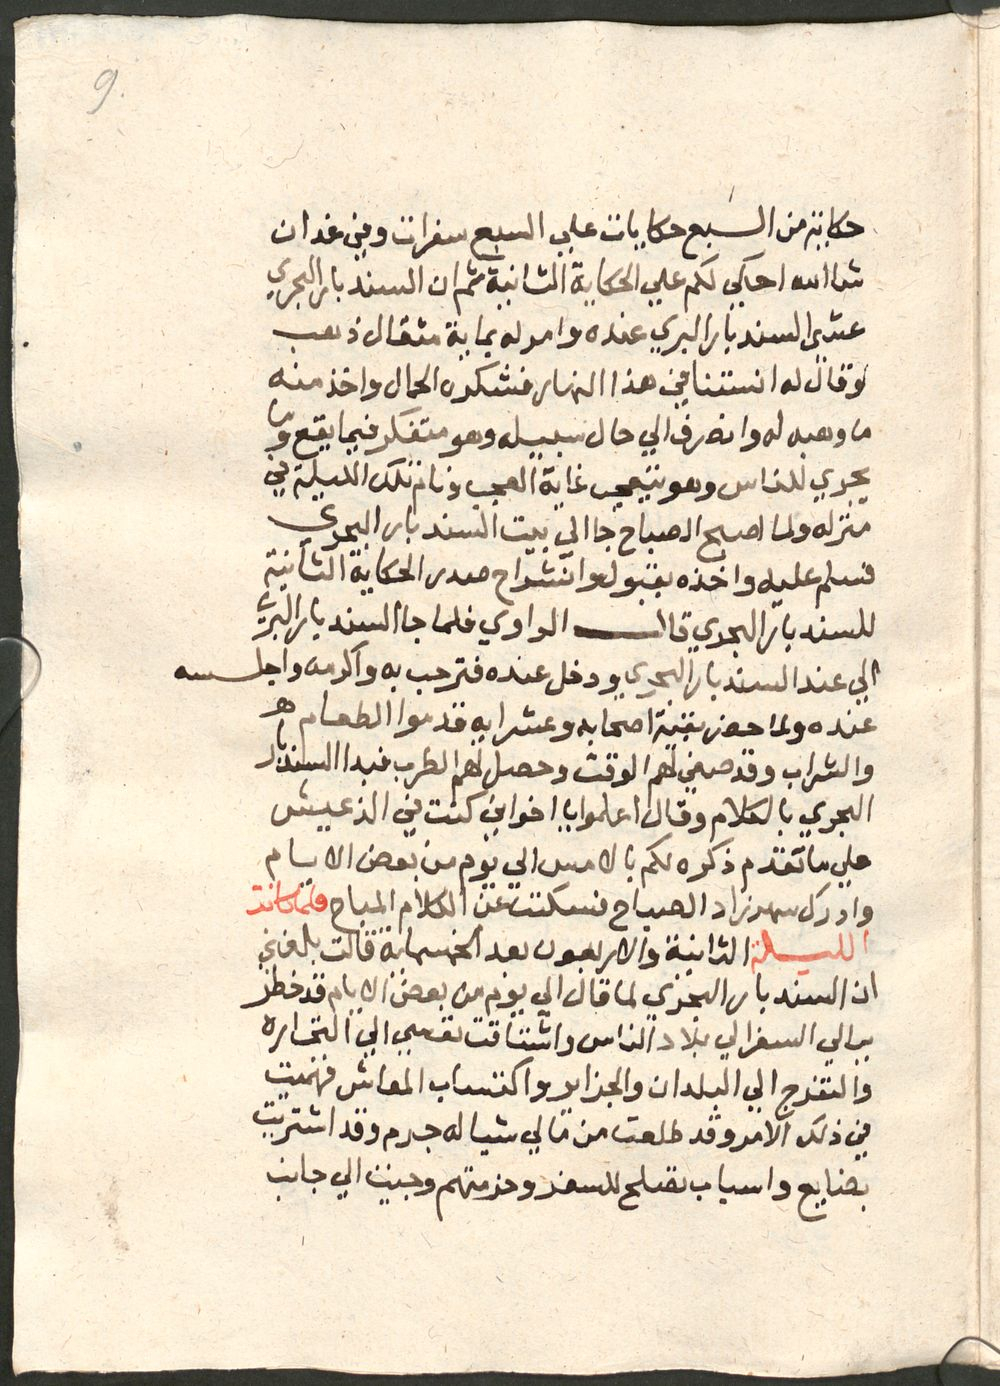 9.
حكاية من السبع حكايات علي السبع سفرات وفي غد ان
شا الله احكي لكم علي الحكاية الثانية ثم ان السندباد البحري
عشي السندباد البري عنده وامر له بماية مثقال ذهب
وقال له انستنا في هذا النهار فشكره الحمال واخذ منه
ما وهبه له وانصرف الي حال سبيله وهو متفكر فيما يقع وما
يجري للناس وهو يتعجب غاية العجب ونام تلك الليلة في
منزله ولما اصبح الصباح جا الي بيت السندباد البحري
فسلم عليه واخذه بقبول وانشراح صدر الحكاية الثانية
للسندباد البحري قال الراوي فلما جا السندباد البري
الي عند السندباد البحري ودخل عنده فترحب به واكرمه واجلسه
عنده ولما حضر بقية اصحابه وعشرايه قدموا الطعام
والشراب وقد صفي لهم الوقت وحصل لهم الطرب فبدا السندباد
البحري بالكلام وقال اعلموا يا اخواني كنت في الذ عيش
علي ما تقدم ذكره لكم بالامس الي يوم من بعض الايام
وادرك سهرزاد الصباح فسكتت عن الكلام المباح فلما كانت
الليلة الثانية والاربعون بعد الخمسماية قالت بلغني
ان السندباد البحري لما قال الي يوم من بعض الايام قد خطر
ببالي السفر الي بلاد الناس واشتاقت نفسي الي التجاره
والتفرج الي البلدان والجزاير واكتساب المعاش فهميت
في ذلك الامر وقد طلعت من مالي شيا له جرم وقد اشتريت
بضايع واسباب تصلح للسفر وحزمتهم وجيت الي جانب